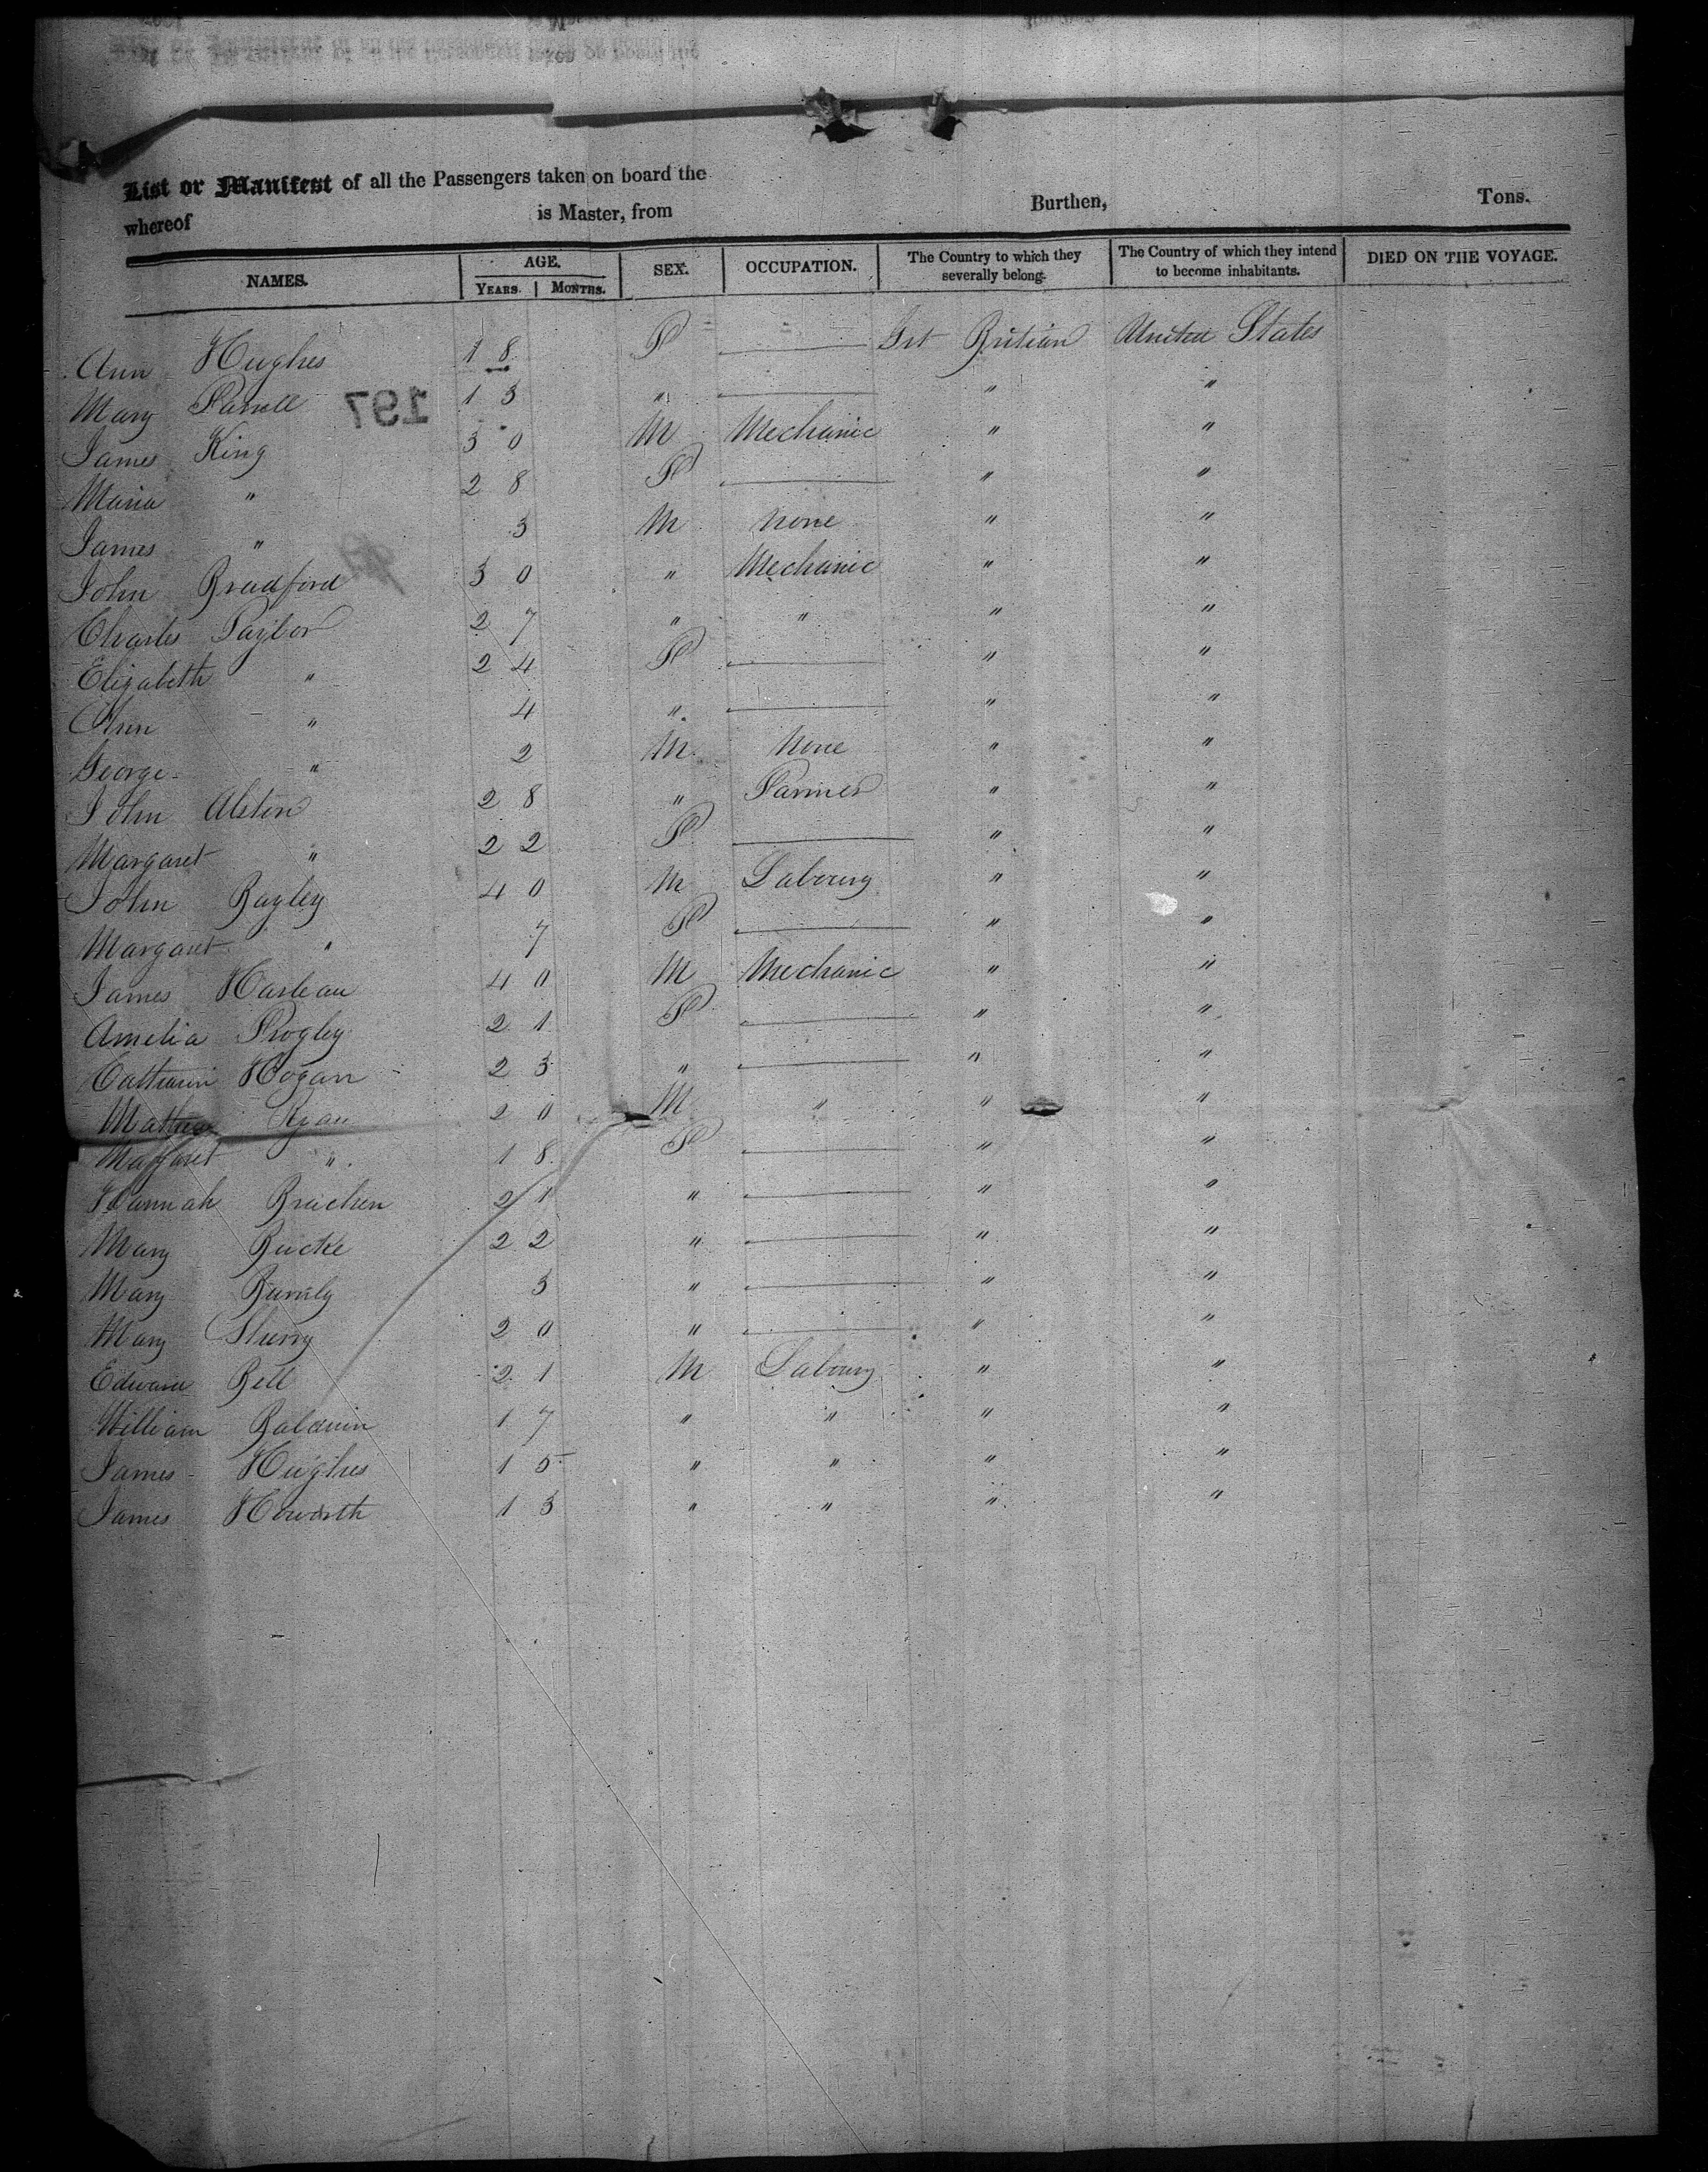 List or Manifest of all the Passengers taken on board the
whereof is Master, from Burthen, Tons.
NAMES. AGE. YEARS. MONTHS. SEX. OCCUPATION. The Country to which they severally belong. The Country of which they intend to become inhabitants. DIED ON THE VOYAGE.
Ann Hughes 18 F Grt Britian United States
Mary Farrell 13 " " "
197
James King 30 M Mechanic " "
Maria " 28 F " "
James " 3 M none " "
John Bradford 30 " Mechanic " "
Charles Taylor 27 " " " "
Elizabeth " 24 F " "
Ann " 4 " " "
George " 2 M. None " "
John Alston 28 " Farmer " "
Margaret " 22 F " "
John Bagley 40 M Labourg " "
Margaret " 7 F " "
James Harleau 40 M Mechanic " "
Amelia 21 F " "
Hogan 23 " " "
Mathew Ryan 20 M " " "
Margaret " 18 F " "
Hannah Brachen 21 " " "
Mary 22 " " "
Mary 3 " " "
Mary 20 " " "
Edward Bell 21 M Labourg " "
William Baldwin 17 " " " "
James Hughes 15 " " " "
James Howorth 13 " " " "